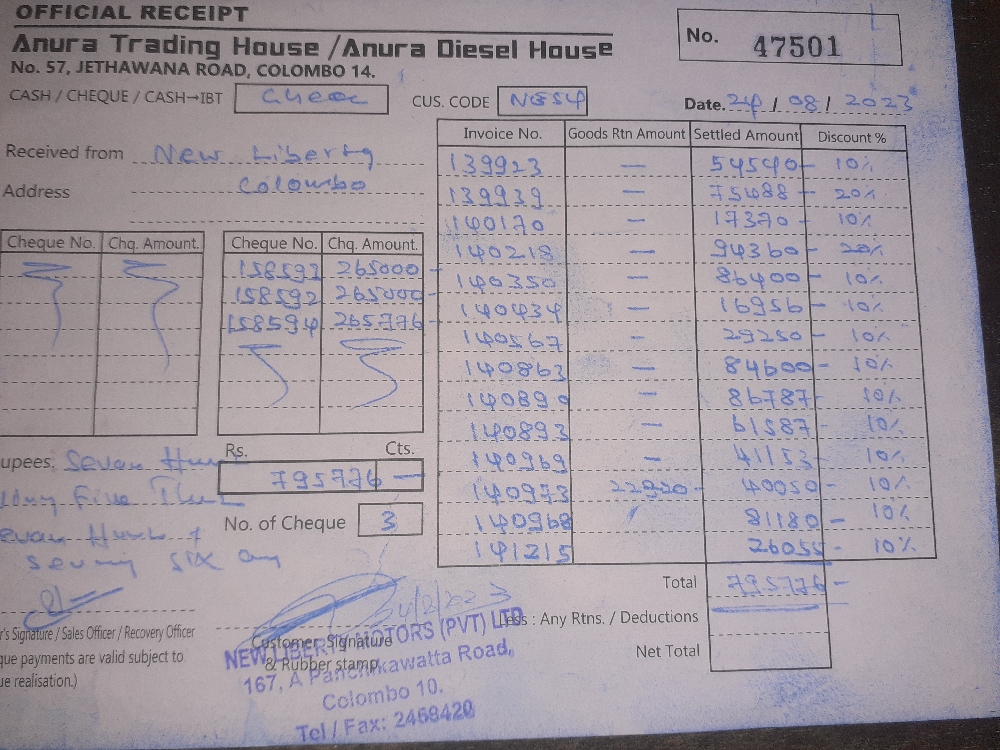 OFFICIAL RECEIPT
Anura Trading House /Anura Diesel House
No. 57, JETHAWANA ROAD, COLOMBO 14.
No. 47501
CASH / CHEQUE / CASH→IBT
CUS. CODE
Date. 24 / 08 / 2023
Received from New Liberty
Address Colombo
Cheque No. Chq. Amount.
Cheque No. Chq. Amount.
158593 265000 -
158592 265000 -
158594 265776 -
Rs. Cts.
795776 —
No. of Cheque 3
upees. Sevan
Five
evan
six
Invoice No. Goods Rtn Amount Settled Amount Discount %
139923 — 54540- 10%
139939 — 75488- 20%
140170 — 17370- 10%
140218 — 94360- 20%
140350 — 86400- 10%
140434 — 16956- 10%
140567 — 29250- 10%
140863 — 84600- 10%
140890 — 86787- 10%
140893 — 61587- 10%
140969 — 41153- 10%
140973 22950- 40050- 10%
140968 81180- 10%
141215 26055- 10%
Total 795776 -
Less : Any Rtns. / Deductions
Net Total
r's Signature / Sales Officer / Recovery Officer
que payments are valid subject to
ue realisation.)
Customer Signature
& Rubber stamp
NEW LIBERTY MOTORS (PVT) LTD
167, A Panchikawatta Road,
Colombo 10.
Tel / Fax: 2469420